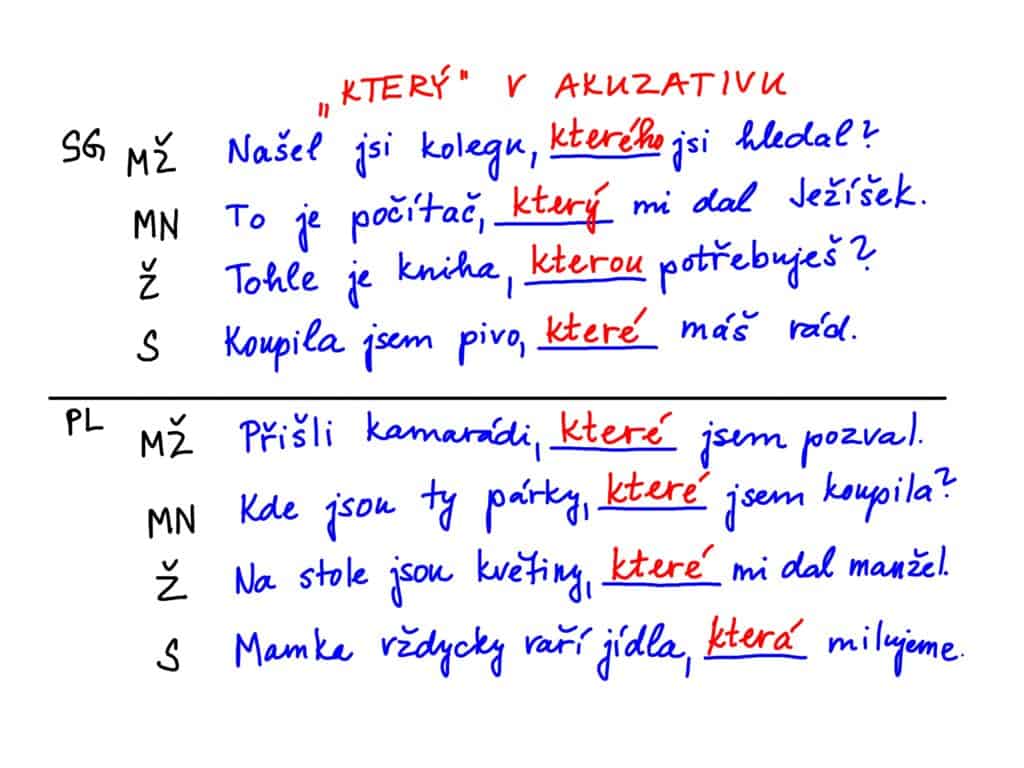 „KTERÝ" V AKUZATIVU
SG MŽ Našel jsi kolegu, kterého jsi hledal?
MN To je počítač, který mi dal Ježíšek.
Ž Tohle je kniha, kterou potřebuješ?
S Koupila jsem pivo, které máš rád.
PL MŽ Přišli kamarádi, které jsem pozval.
MN Kde jsou ty párky, které jsem koupila?
Ž Na stole jsou květiny, které mi dal manžel.
S Mamka vždycky vaří jídla, která milujeme.